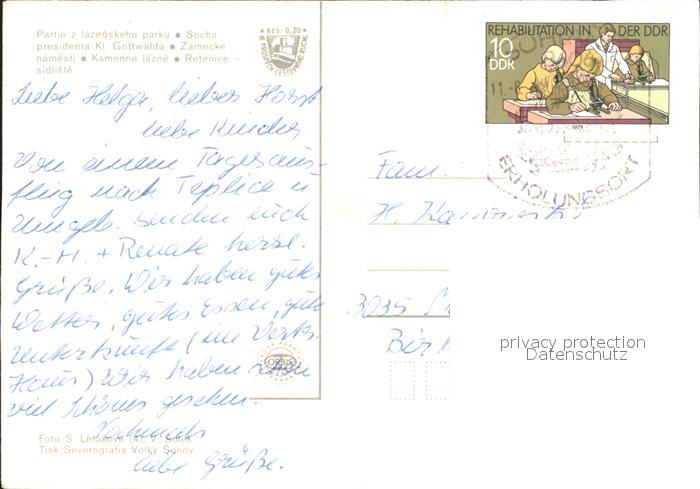 Partie z lázeňského parku ● Socha
presidenta Kl. Gottwalda ● Zámecké
náměstí ● Kamenné lázně ● Řetenice –
sídliště
Kčs 0,20
REHABILITATION IN DER DDR
10
DDR
1979
ERHOLUNGSORT
Liebe Helga, lieber Horst
liebe Kinder
Von einem Tagesaus-
flug nach Teplice u.
Umgeb. senden euch
K.-H. + Renate herzl.
Grüße. Wir haben gutes
Wetter, gutes Essen, gute
Unterkunft (im Vertr.
Haus) Wir haben schon
viel schönes gesehen.
Nochmals
liebe Grüße.
Fam.
H.
3035
ORBIS
Foto S. Letáková (4), V. Šulek
Tisk Severografia Velký Šenov
privacy protection
Datenschutz